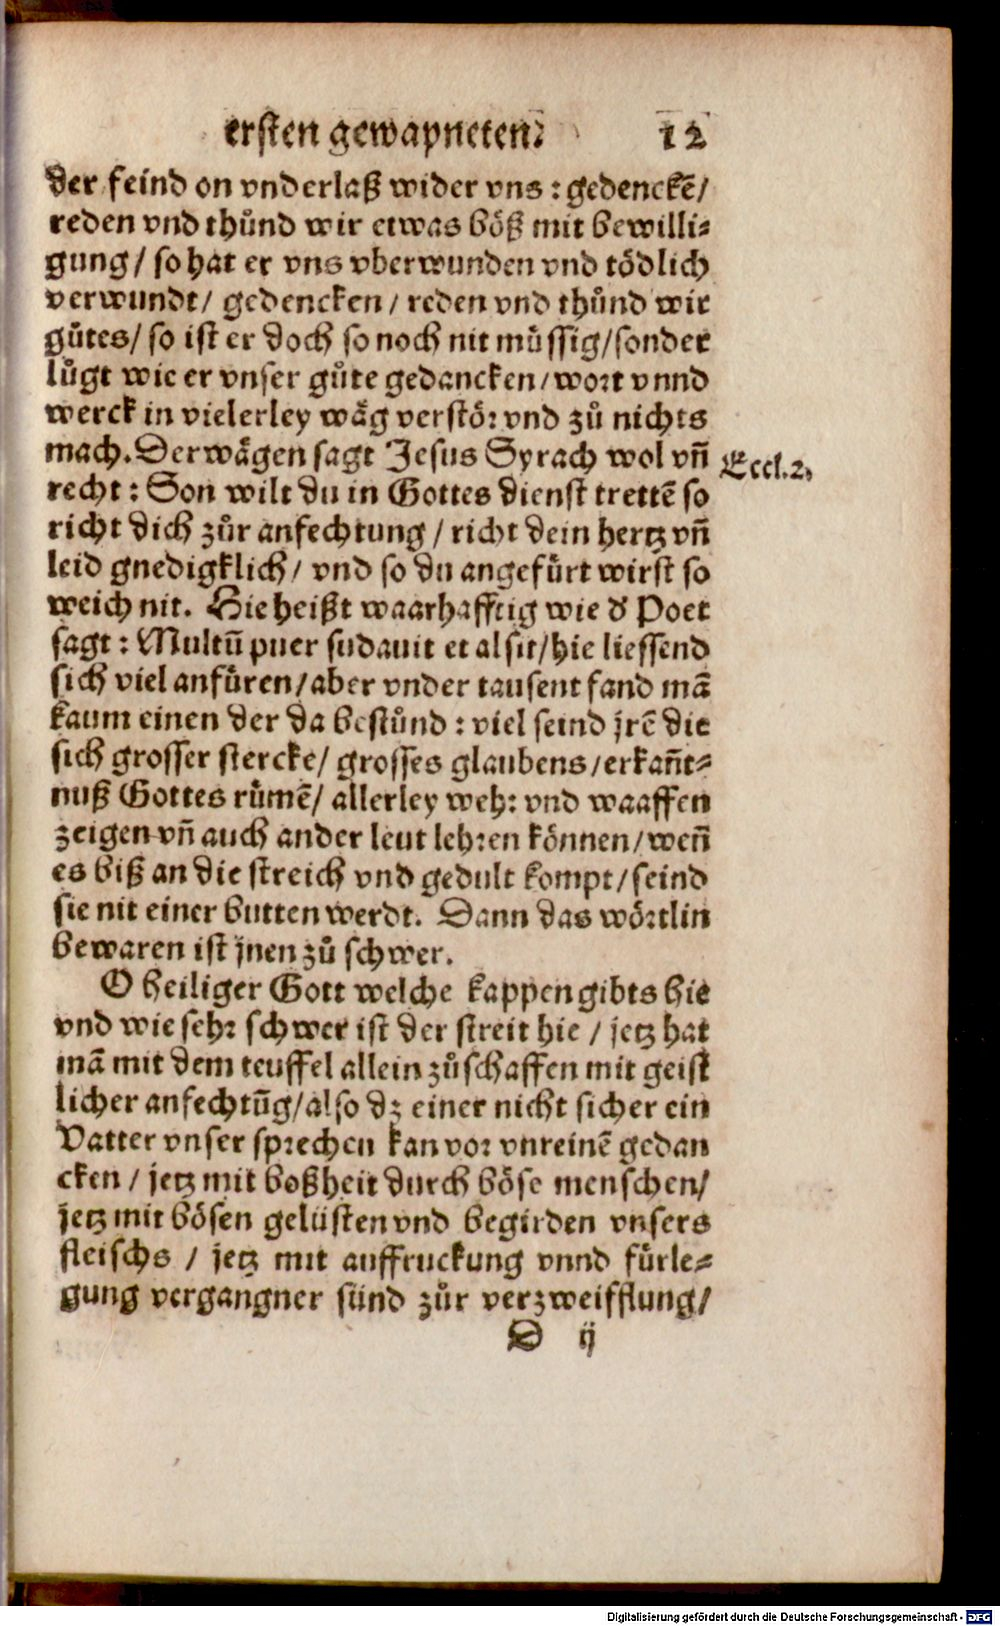 ersten gewapneten. 12
der feind on vnderlaß wider vns : gedenckẽ/
reden vnd thůnd wir etwas böß mit bewilli⸗
gung/ so hat er vns vberwunden vnd tödlich
verwundt/ gedencken/ reden vnd thůnd wir
gůtes/ so ist er doch so noch nit müssig/sonder
lůgt wie er vnser gůte gedancken/wort vnnd
werck in vielerley wäg verstör vnd zů nichts
mach. Derwägen sagt Jesus Syrach wol vñ
Eccl.2.
recht : Son wilt du in Gottes dienst trettẽ so
richt dich zůr anfechtung/ richt dein hertz vñ
leid gnedigklich/ vnd so du angefürt wirst so
weich nit. Hie heißt waarhafftig wie d' Poet
sagt : Multũ puer sudauit et alsit/hie liessend
sich viel anfüren/aber vnder tausent fand mã
kaum einen der da bestůnd : viel seind jrẽ die
sich grosser stercke/ grosses glaubens/erkañt⸗
nuß Gottes rümẽ/ allerley wehr vnd waaffen
zeigen vñ auch ander leut lehren können/weñ
es biß an die streich vnd gedult kompt/seind
sie nit einer butten werdt. Dann das wörtlin
bewaren ist jnen zů schwer.
O heiliger Gott welche kappen gibts hie
vnd wie sehr schwer ist der streit hie / jetz hat
mã mit dem teuffel allein zůschaffen mit geist
licher anfechtũg/also dz einer nicht sicher ein
Vatter vnser sprechen kan vor vnreinẽ gedan
cken / jetz mit boßheit durch böse menschen/
jetz mit bösen gelüsten vnd begirden vnsers
fleischs / jetz mit auffruckung vnnd fürle⸗
gung vergangner sünd zůr verzweifflung/
D ij
Digitalisierung gefördert durch die Deutsche Forschungsgemeinschaft - DFG